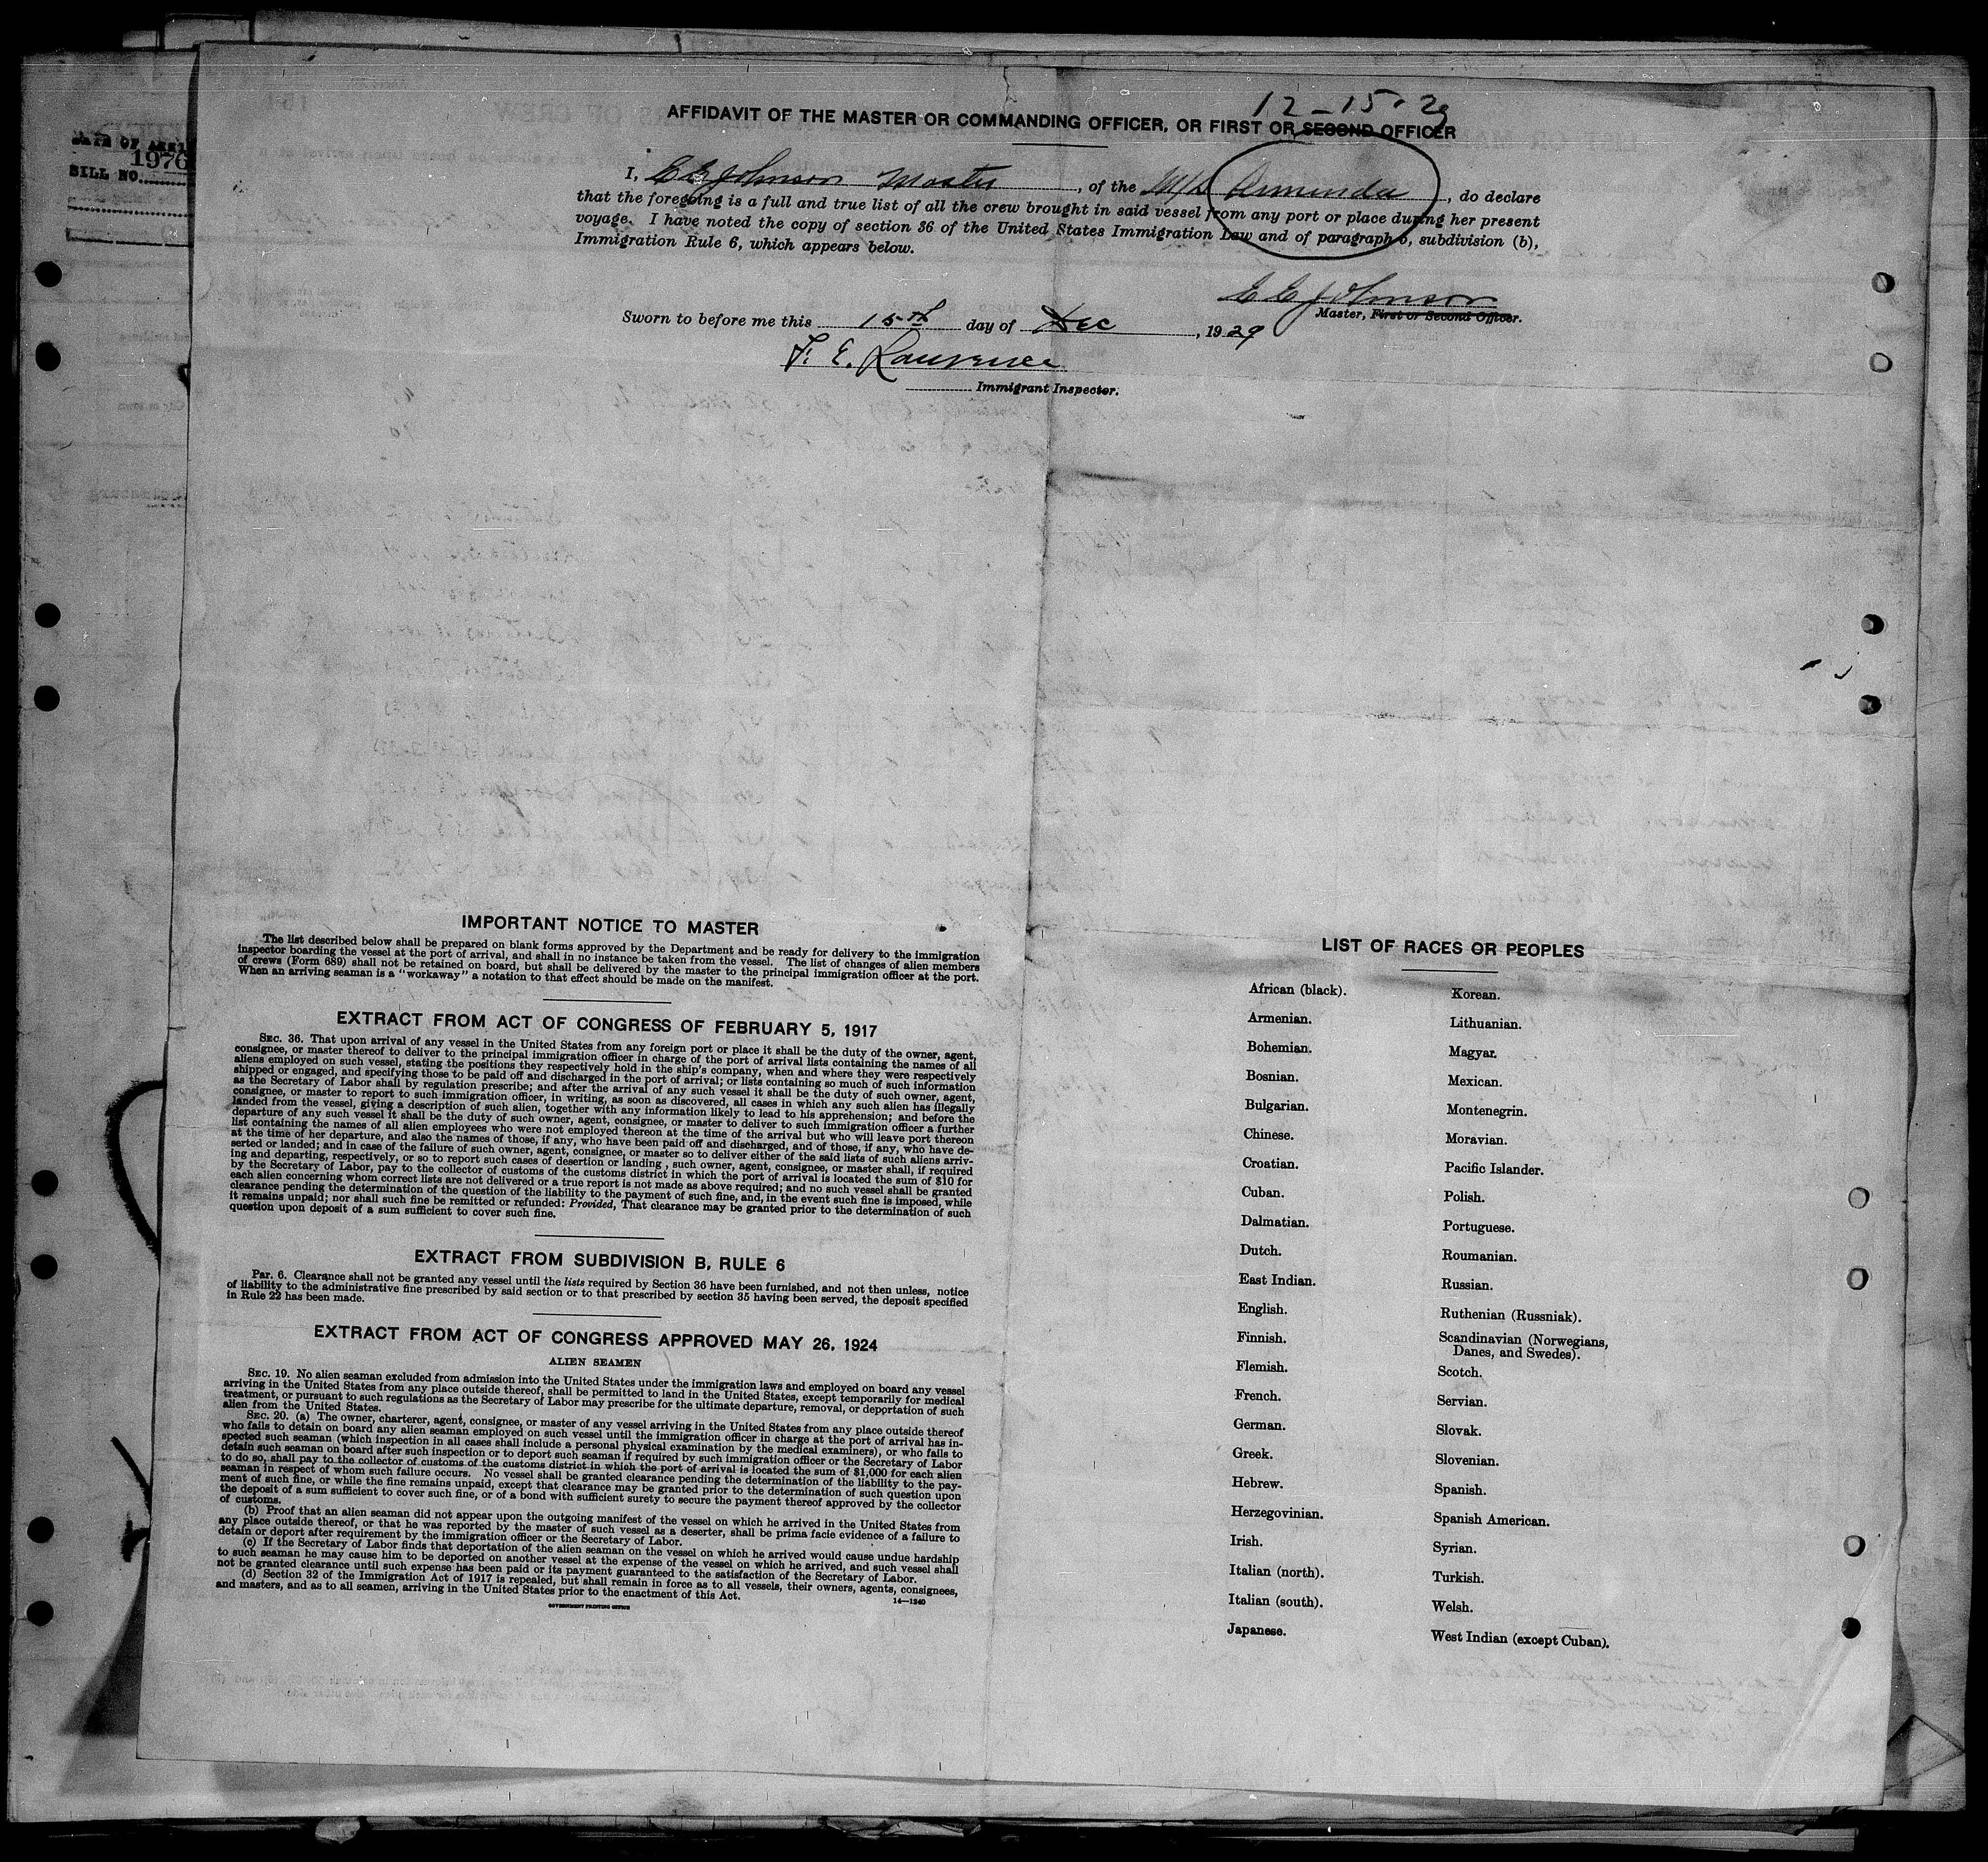 12-15-29
AFFIDAVIT OF THE MASTER OR COMMANDING OFFICER, OR FIRST OR SECOND OFFICER
DATE OF
1976
BILL NO.
I, E E Johnson Master, of the M/S Armenda, do declare
that the foregoing is a full and true list of all the crew brought in said vessel from any port or place during her present
voyage. I have noted the copy of section 36 of the United States Immigration Law and of paragraph 6, subdivision (b),
Immigration Rule 6, which appears below.
E E Johnson
Master, First or Second Officer.
Sworn to before me this 15th day of Dec, 1929
F. E. Lawrence
Immigrant Inspector.
IMPORTANT NOTICE TO MASTER
The list described below shall be prepared on blank forms approved by the Department and be ready for delivery to the immigration
inspector boarding the vessel at the port of arrival, and shall in no instance be taken from the vessel. The list of changes of alien members
of crews (Form 689) shall not be retained on board, but shall be delivered by the master to the principal immigration officer at the port.
When an arriving seaman is a "workaway" a notation to that effect should be made on the manifest.
EXTRACT FROM ACT OF CONGRESS OF FEBRUARY 5, 1917
SEC. 36. That upon arrival of any vessel in the United States from any foreign port or place it shall be the duty of the owner, agent,
consignee, or master thereof to deliver to the principal immigration officer in charge of the port of arrival lists containing the names of all
aliens employed on such vessel, stating the positions they respectively hold in the ship's company, when and where they were respectively
shipped or engaged, and specifying those to be paid off and discharged in the port of arrival; or lists containing so much of such information
as the Secretary of Labor shall by regulation prescribe; and after the arrival of any such vessel it shall be the duty of such owner, agent,
consignee, or master to report to such immigration officer, in writing, as soon as discovered, all cases in which any such alien has illegally
landed from the vessel, giving a description of such alien, together with any information likely to lead to his apprehension; and before the
departure of any such vessel it shall be the duty of such owner, agent, consignee, or master to deliver to such immigration officer a further
list containing the names of all alien employees who were not employed thereon at the time of the arrival but who will leave port thereon
at the time of her departure, and also the names of those, if any, who have been paid off and discharged, and of those, if any, who have de-
serted or landed; and in case of the failure of such owner, agent, consignee, or master so to deliver either of the said lists of such aliens arriv-
ing and departing, respectively, or so to report such cases of desertion or landing, such owner, agent, consignee, or master shall, if required
by the Secretary of Labor, pay to the collector of customs of the customs district in which the port of arrival is located the sum of $10 for
each alien concerning whom correct lists are not delivered or a true report is not made as above required; and no such vessel shall be granted
clearance pending the determination of the question of the liability to the payment of such fine, and, in the event such fine is imposed, while
it remains unpaid; nor shall such fine be remitted or refunded: Provided, That clearance may be granted prior to the determination of such
question upon deposit of a sum sufficient to cover such fine.
EXTRACT FROM SUBDIVISION B, RULE 6
Par. 6. Clearance shall not be granted any vessel until the lists required by Section 36 have been furnished, and not then unless, notice
of liability to the administrative fine prescribed by said section or to that prescribed by section 35 having been served, the deposit specified
in Rule 22 has been made.
EXTRACT FROM ACT OF CONGRESS APPROVED MAY 26, 1924
ALIEN SEAMEN
SEC. 19. No alien seaman excluded from admission into the United States under the immigration laws and employed on board any vessel
arriving in the United States from any place outside thereof, shall be permitted to land in the United States, except temporarily for medical
treatment, or pursuant to such regulations as the Secretary of Labor may prescribe for the ultimate departure, removal, or deportation of such
alien from the United States.
SEC. 20. (a) The owner, charterer, agent, consignee, or master of any vessel arriving in the United States from any place outside thereof
who fails to detain on board any alien seaman employed on such vessel until the immigration officer in charge at the port of arrival has in-
spected such seaman (which inspection in all cases shall include a personal physical examination by the medical examiners), or who fails to
detain such seaman on board after such inspection or to deport such seaman if required by such immigration officer or the Secretary of Labor
to do so, shall pay to the collector of customs of the customs district in which the port of arrival is located the sum of $1,000 for each alien
seaman in respect of whom such failure occurs. No vessel shall be granted clearance pending the determination of the liability to the pay-
ment of such fine, or while the fine remains unpaid, except that clearance may be granted prior to the determination of such question upon
the deposit of a sum sufficient to cover such fine, or of a bond with sufficient surety to secure the payment thereof approved by the collector
of customs.
(b) Proof that an alien seaman did not appear upon the outgoing manifest of the vessel on which he arrived in the United States from
any place outside thereof, or that he was reported by the master of such vessel as a deserter, shall be prima facie evidence of a failure to
detain or deport after requirement by the immigration officer or the Secretary of Labor.
(c) If the Secretary of Labor finds that deportation of the alien seaman on the vessel on which he arrived would cause undue hardship
to such seaman he may cause him to be deported on another vessel at the expense of the vessel on which he arrived, and such vessel shall
not be granted clearance until such expense has been paid or its payment guaranteed to the satisfaction of the Secretary of Labor.
(d) Section 32 of the Immigration Act of 1917 is repealed, but shall remain in force as to all vessels, their owners, agents, consignees,
and masters, and as to all seamen, arriving in the United States prior to the enactment of this Act.
14—1240
GOVERNMENT PRINTING OFFICE
LIST OF RACES OR PEOPLES
African (black).
Armenian.
Bohemian.
Bosnian.
Bulgarian.
Chinese.
Croatian.
Cuban.
Dalmatian.
Dutch.
East Indian.
English.
Finnish.
Flemish.
French.
German.
Greek.
Hebrew.
Herzegovinian.
Irish.
Italian (north).
Italian (south).
Japanese.
Korean.
Lithuanian.
Magyar.
Mexican.
Montenegrin.
Moravian.
Pacific Islander.
Polish.
Portuguese.
Roumanian.
Russian.
Ruthenian (Russniak).
Scandinavian (Norwegians,
Danes, and Swedes).
Scotch.
Servian.
Slovak.
Slovenian.
Spanish.
Spanish American.
Syrian.
Turkish.
Welsh.
West Indian (except Cuban).